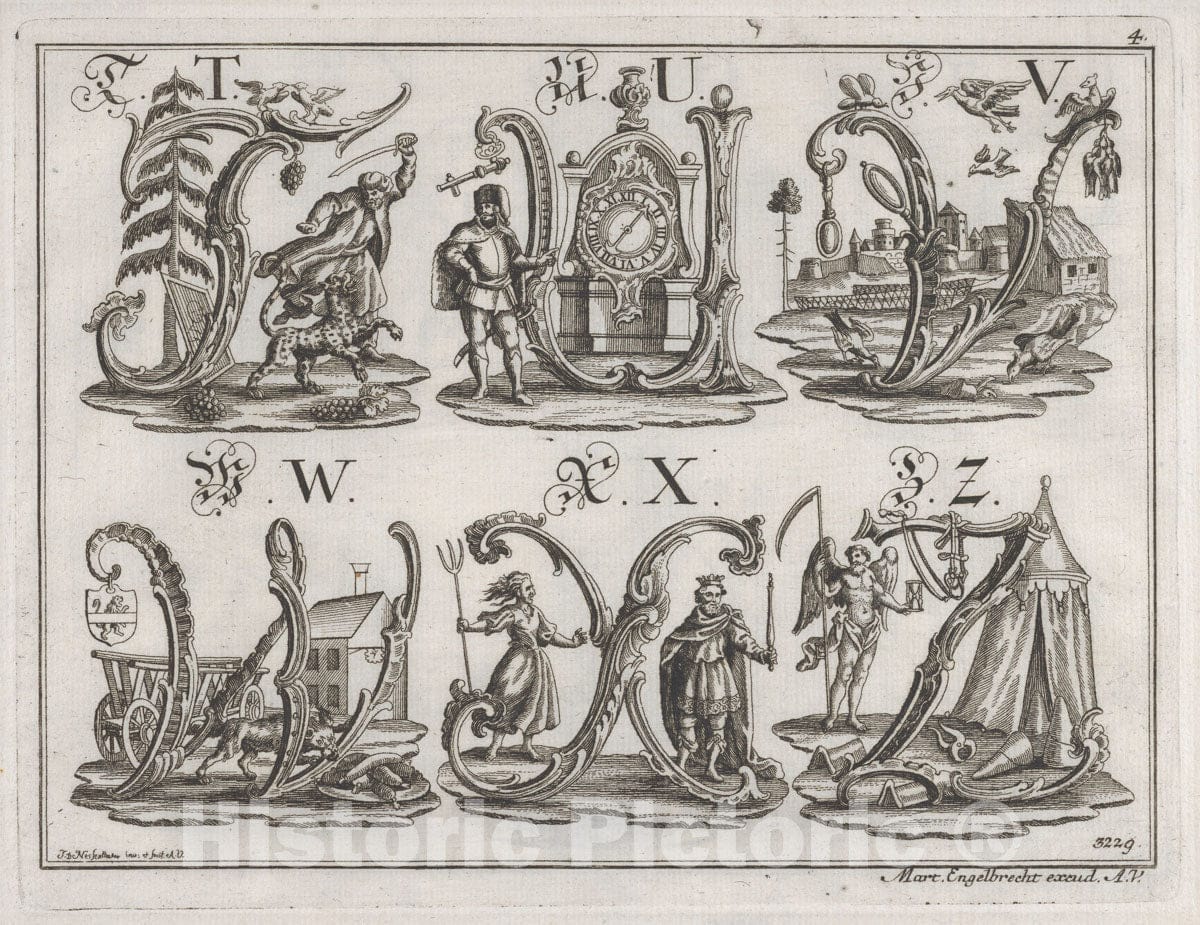 4.
T. T. U. U. V. V.
W. W. X. X. Z. Z.
Historic Pictoric ®
inv: et fecit. A.V.
3229.
Mart. Engelbrecht excud. A.V.